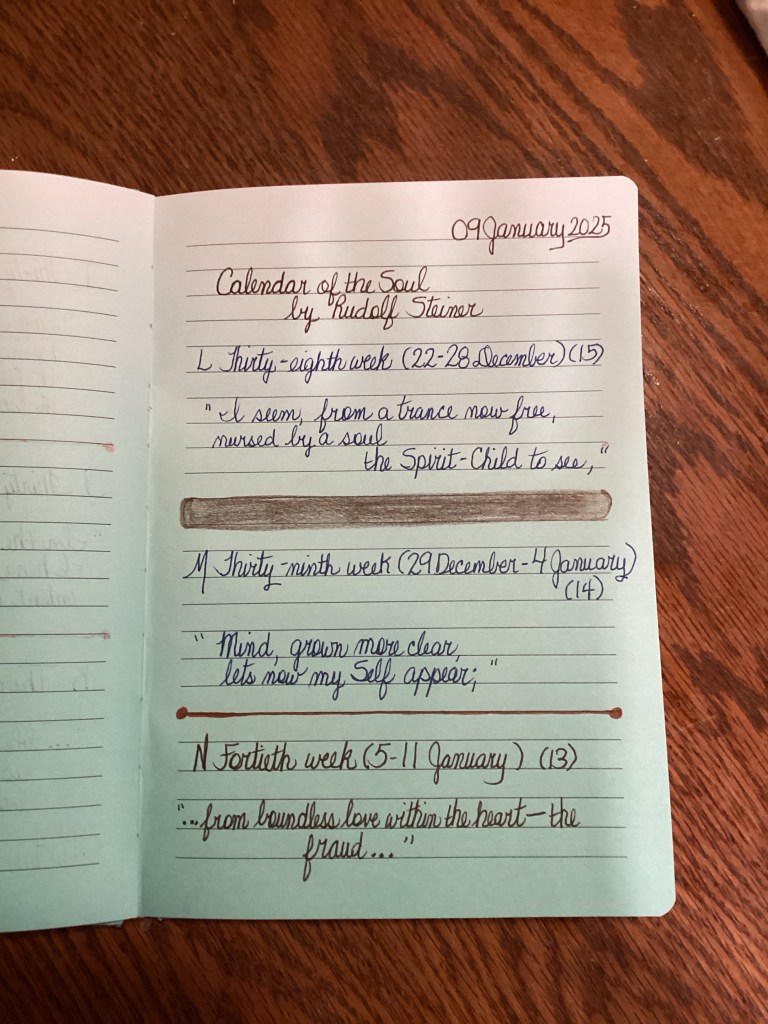 09 January 2025
Calendar of the Soul
by Rudolf Steiner
L Thirty-eighth week (22-28 December) (15)
"I seem, from a trance now free,
nursed by a soul
the Spirit-Child to see,"
M Thirty-ninth week (29 December - 4 January)
(14)
"Mind, grown more clear,
lets now my Self appear;"
N Fortieth week (5-11 January) (13)
"...from boundless love within the heart—the
fraud..."